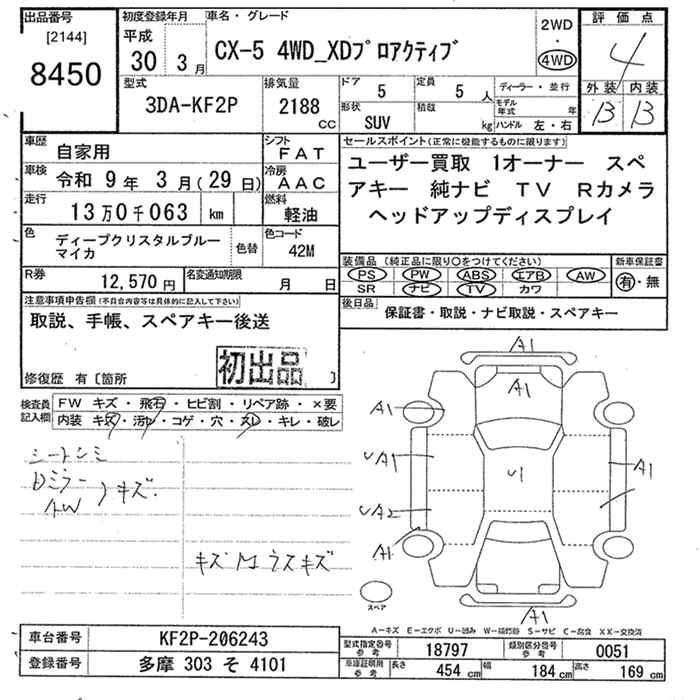 出品番号
[2144]
8450
初度登録年月
平成
30 3月
車名・グレード
CX-5 4WD_XDプロアクティブ
2WD
・
4WD
評価点
4
外装 内装
B B
型式
3DA-KF2P
排気量
2188 CC
ドア
5
定員
5 人
形状
SUV
積載
kg
ディーラー・並行
モデル年式 年
ハンドル 左・右
車歴
自家用
シフト
FAT
車検
令和 9年 3月(29日)
冷房
AAC
走行
13万0千063 km
燃料
軽油
色
ディープクリスタルブルー
マイカ
色替
色コード
42M
R券
12,570円
名変通知期限
月 日
セールスポイント(正常に機能するものに限ります)
ユーザー買取 1オーナー スペ
アキー 純ナビ TV Rカメラ
ヘッドアップディスプレイ
装備品(純正品に限り○をつけてください)
PS PW ABS エアB AW
SR ナビ TV カワ
新車保証書
有・無
後日品
保証書・取説・ナビ取説・スペアキー
注意事項申告欄(不具合内容等は具体的に記入して下さい)
取説、手帳、スペアキー後送
初出品
修復歴 有〔箇所 〕
検査員
記入欄
FW キズ・飛石・ヒビ割・リペア跡・×要
内装 キズ・汚レ・コゲ・穴・スレ・キレ・破レ
シートシミ
Dミラー
AW
キズ.
キズ M ラスキズ
A1
A1
A1
UA1
U1
A1
UA2
A1
A1
スペア
A-キズ E-エクボ U-凹み W-補修跡 S-サビ C-腐食 XX-交換済
車台番号
KF2P-206243
登録番号
多摩 303 そ 4101
型式指定番号
参考
18797
類別区分番号
参考
0051
車庫証明用
参考
長さ 454 cm
幅 184 cm
高さ 169 cm